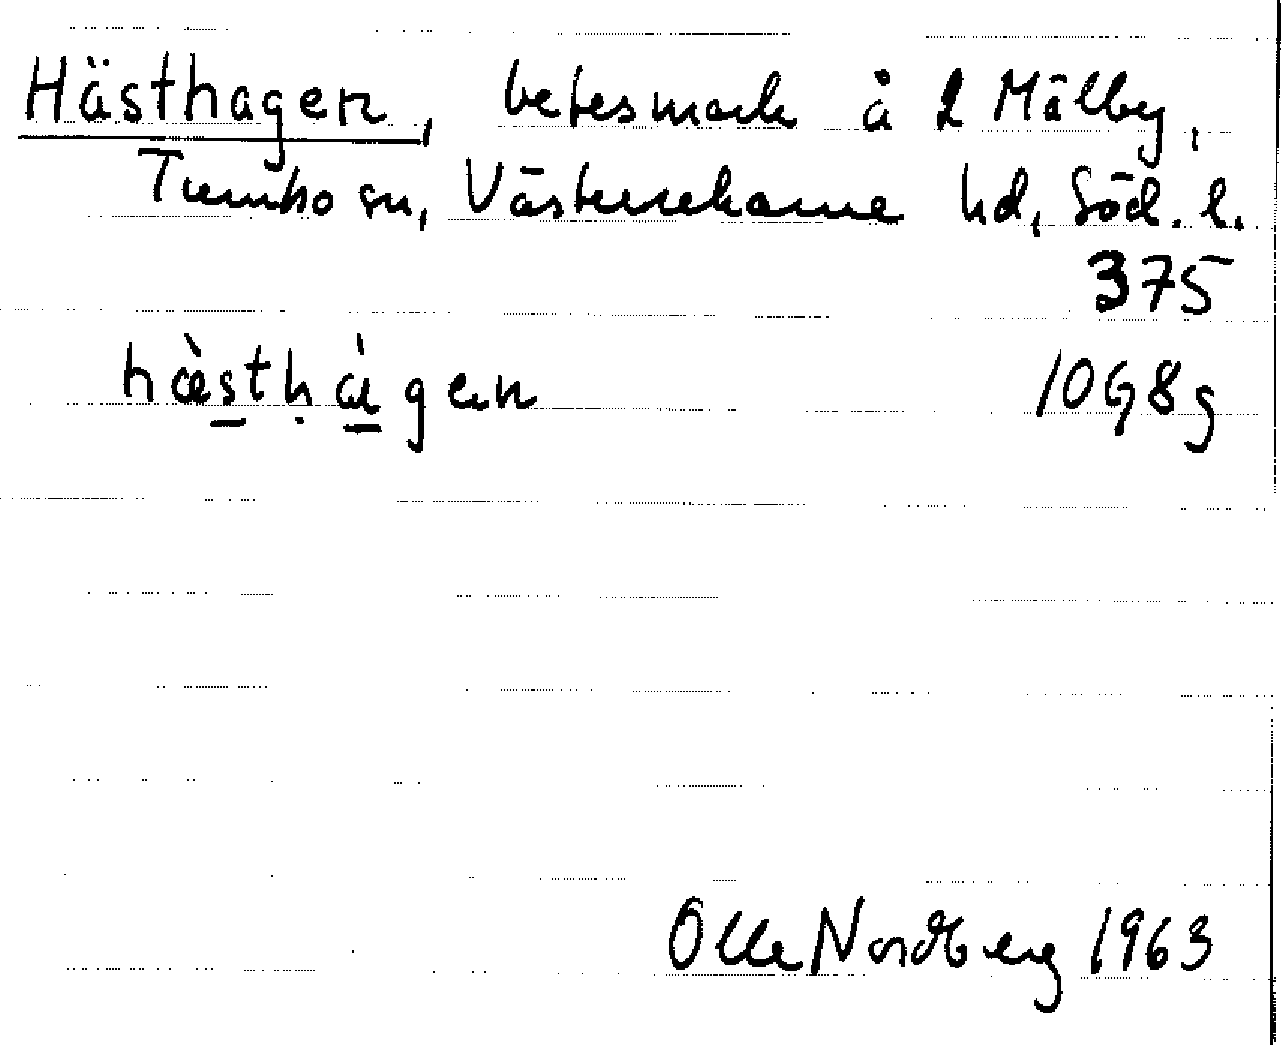 Hästhagen, betesmark å L Mälby,
Tumbo sn, Västerrekarne hd, Söd. l.
375
hæ̀stḥàgen 10G8g
Olle Nordberg 1963